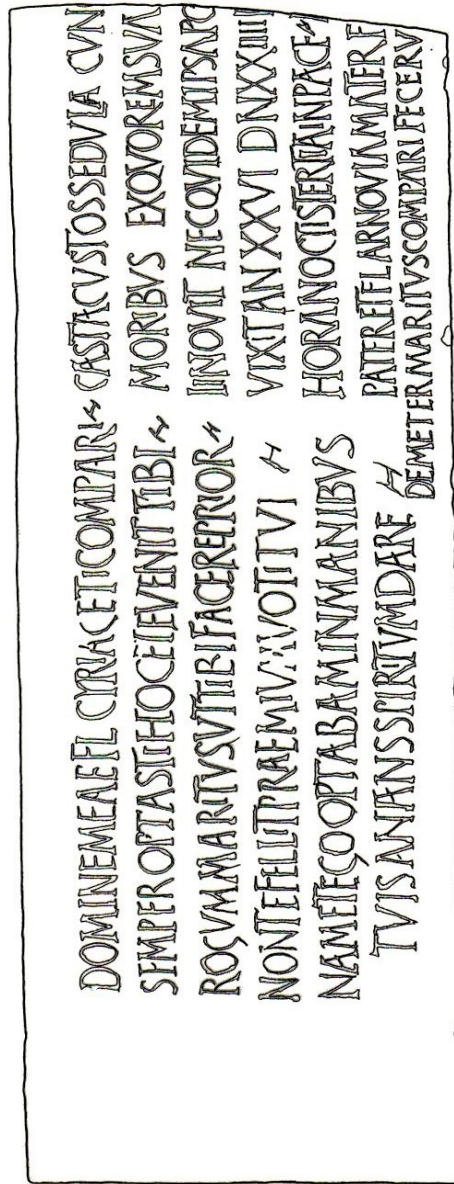 DOMINEMEAEFL CYRIACETICOMPARI
SEMPER OPTASTIHOCETEVENITTIBI
ROGVMMARITVSVTTIBIFACEREPRIOR
NONTEFELLITPRAEMIVMVOTITVI
NAMETEGOOPTABAMINMANIBVS
TVISANANSSPIRITVMDARE
CASTACVSTOSSEDVLA CVN
MORIBVS EXQVOREMSVA
IINOVIT NECQVIDEMIPSAPC
VIXITAN XXVI DNXXIIII
HORANOCTISTERTIAINPACE
PATERETFLARNOVIAMATERF
DEMETERMARITVSCOMPARIFECERV